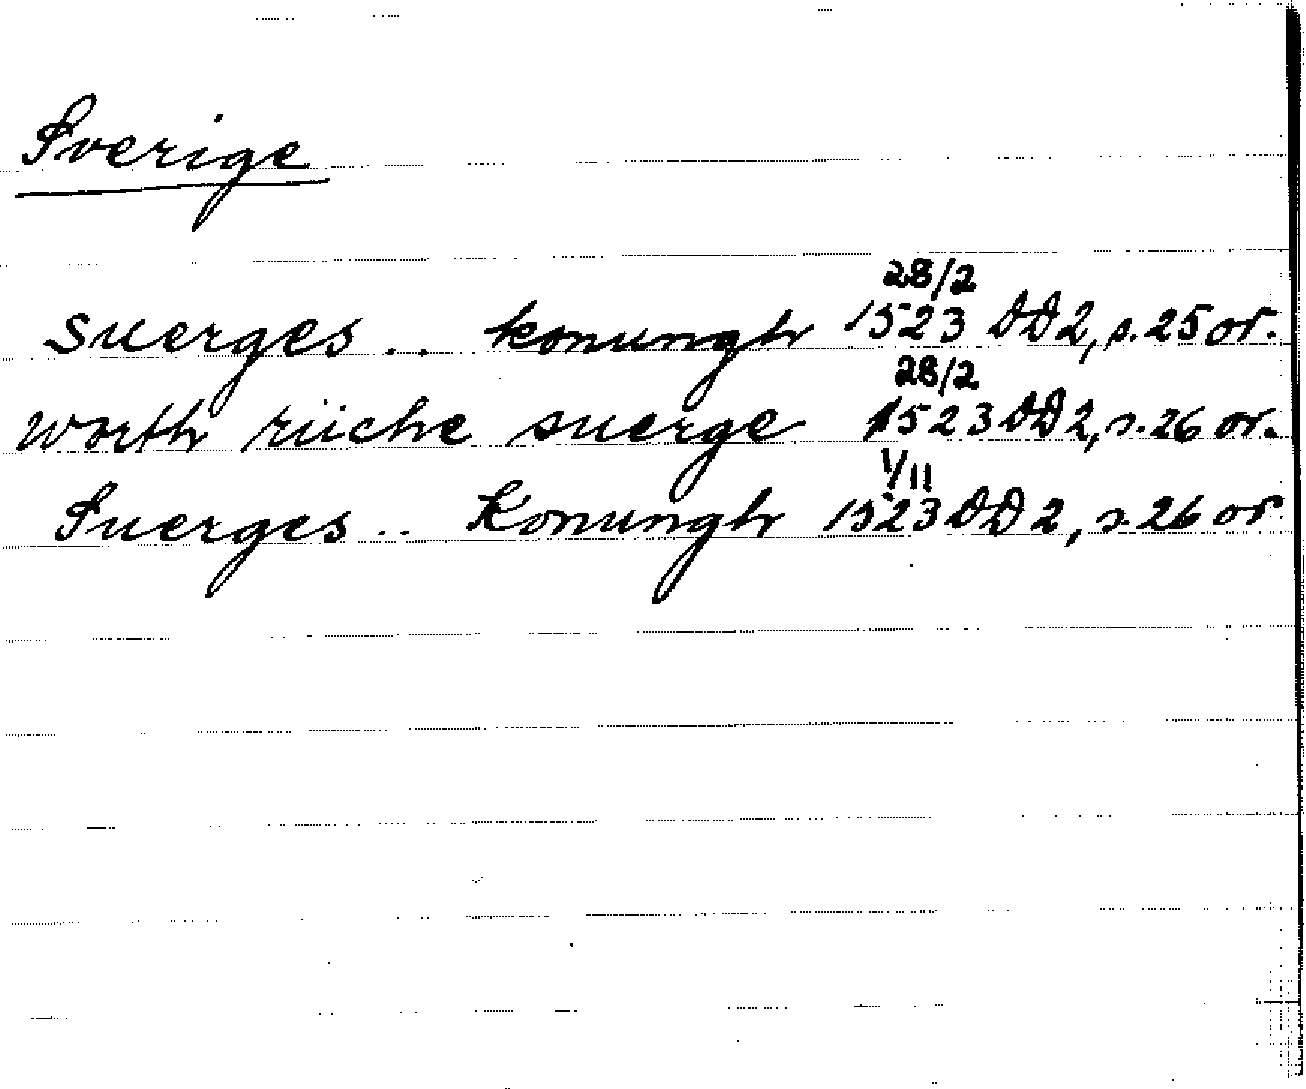 Sverige
28/2
suerges .. konungh 1523 DD2, s. 25 or.
28/2
worth rüche suerge 1523 DD2, s. 26 or.
1/11
Suerges .. Konungh 1523 DD 2, s. 26 or